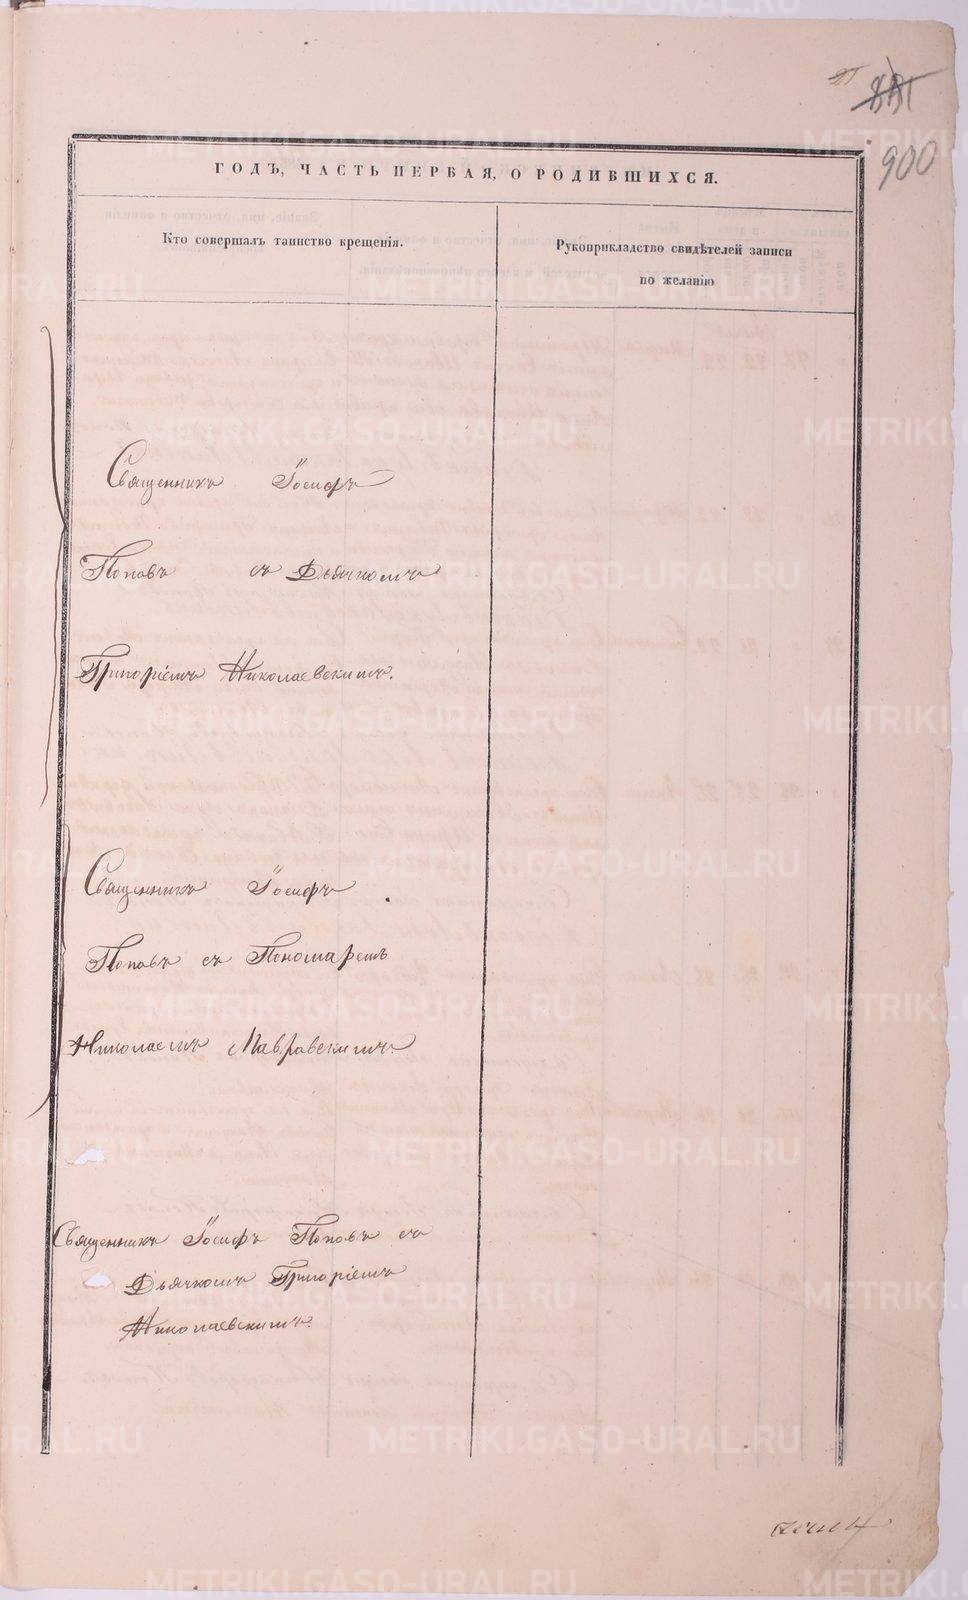 900
ГОДЪ, ЧАСТЬ ПЕРВАЯ, О РОДИВШИХСЯ.
Кто совершалъ таинство крещенія.
Рукоприкладство свидѣтелей записи
по желанію
Священникъ Іосифъ
Поповъ съ Дьячкомъ
Григоріемъ Николаевскимъ.
Священникъ Іосифъ
Поповъ съ Пономаремъ
Николаемъ Мавровскимъ
Священникъ Іосифъ Поповъ съ
Дьячкомъ Григоріемъ
Николаевскимъ.
METRIKI.GASO-URAL.RU